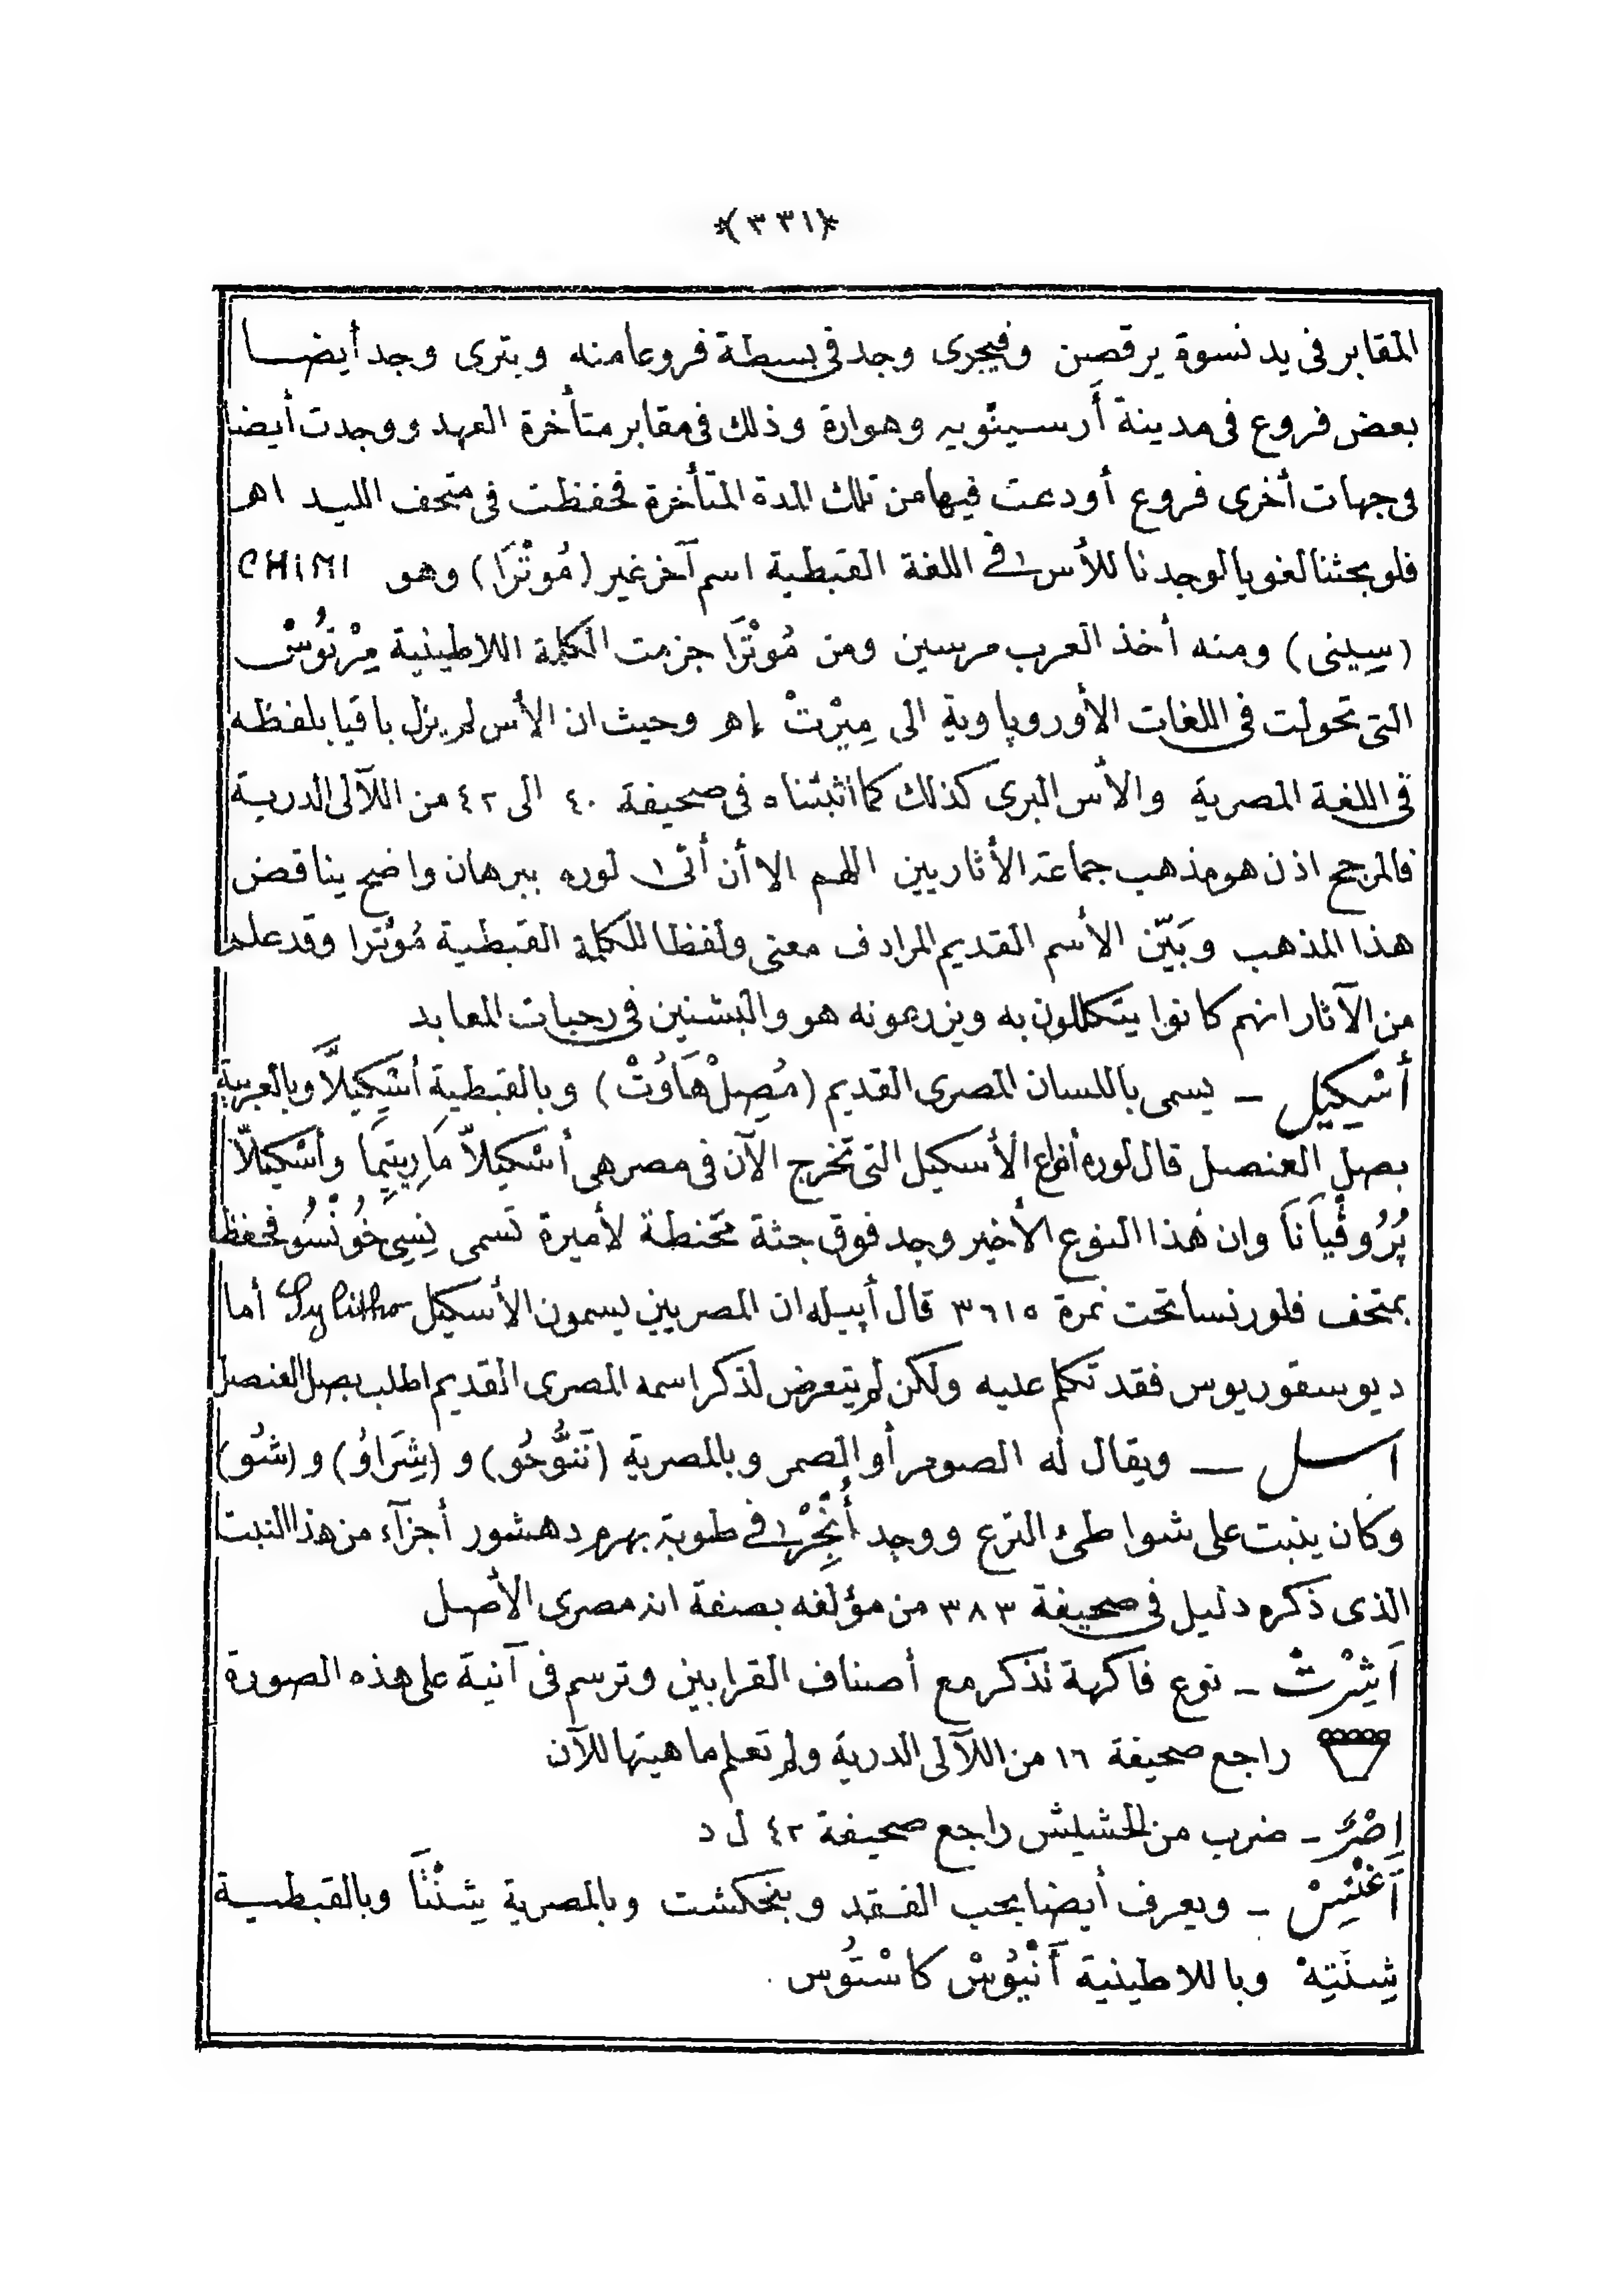 ﴿٣٣١﴾
المقابر فى يد نسوة يرقصن وفيجرى وجد فى بسطة فروعا منه وبترى وجد أيضا
بعض فروع فى مدينة أرسينويه وهوارة وذلك فى مقابر متأخرة العهد ووجدت أيضا
فى جهات أخرى فروع أودعت فيها من تلك المدة المتأخرة فحفظت فى متحف الليد اهـ
فلو بحثنا لغويا لوجدنا للأس فى اللغة القبطية اسم آخر غير (مُوتْرَا) وهو CHIMI
(سِينى) ومنه أخذ العرب مرسين ومن مُوتْرَا جزمت الكلمة اللاطينية مِرْتُوسْ
التى تحولت فى اللغات الأوروپاوية الى مِيرْتْ إهـ وحيث ان الأس لم يزل باقيا بلفظه
فى اللغة المصرية والأس البرى كذلك كما أثبتناه فى صحيفة ٤٠ الى ٤٢ من اللآلى الدرية
فالمرجح اذن هو مذهب جماعة الأثاريين اللهم الا أن أتى لوره ببرهان واضح يناقض
هذا المذهب وبَيّن الأسم القديم المرادف معنى ولفظا للكلمة القبطية مُوتْرا وقد علم
من الآثار انهم كانوا يتكللون به ويزرعونه هو والبشنين فى رحبات المعابد
أَسْكِيل ـ يسمى باللسان المصرى القديم (مُصِلْ هَاوُتْ) وبالقبطية أسْكِيلَّا وبالعربية
بصل العنصل قال لوره أنواع الأسكيل التى تخرج الآن فى مصر هى أسْكيلاّ مَارِيتِيمَا وأسْكيلاّ
پُرُوڤيَانَا وان هذا النوع الأخير وجد فوق جثة محنطة لأميرة تسمى نِسِى خُونْسُو فحفظ
بمتحف فلورنسا تحت نمرة ٣٦١٥ قال أپيله ان المصريين يسمون الأسكيل أما
ديوسقوريوس فقد تكلم عليه ولكن لم يتعرض لذكر اسمه المصرى القديم اطلب بصل العنصل
اسل ـ ويقال له الصومر أو الصمر وبالمصرية (نَنُوحُو) و (شِرَاوُ) و (شُو)
وكان ينبت على شواطئ الترع ووجد أُنْجِرْ فى طوبة بهرم دهشور أجزآء من هذا النبت
الذى ذكره دليل فى صحيفة ٣٨٣ من مؤلفه بصفة انه مصرى الأصل
آشِرْتْ ـ نوع فاكهة تذكر مع أصناف القرابين وترسم فى آنية على هذه الصورة
راجع صحيفة ١٦ من اللآلى الدرية ولم تعلم ماهيتها للآن
اِصْرَ ـ ضرب من الحشيش راجع صحيفة ٤٢ ل د
آغْنِسْ ـ ويعرف أيضا بحب الفقد وبنجكشت وبالمصرية شِنْتَا وبالقبطية
شِنَتِهْ وباللاطينية آنْيُوسْ كاسْتَوس